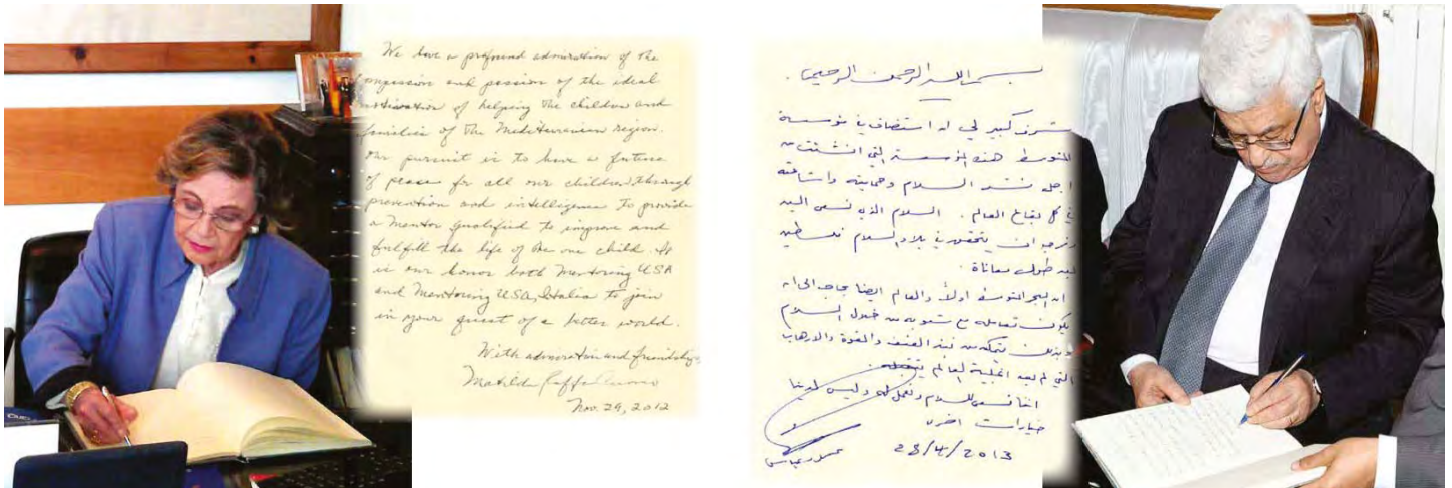 We have a profound admiration of the
compassion and passion of the ideal
motivation of helping the children and
families of the Mediterranean region.
Our pursuit is to have a future
of peace for all our children, through
prevention and intelligence to provide
a Mentor qualified to improve and
fulfill the life of the one child. It
is our honor both Mentoring USA
and Mentoring USA, Italia to join
in your quest of a better world.
With admiration and friendship,
Matilda Raffa Cuomo
Nov. 29, 2012
بسم الله الرحمن الرحيم
شرف كبير لي ان استضاف في مؤسسة
المتوسط هذه المؤسسة التي انشئت من
اجل نشر السلام وحمايته واشاعته
في كل بقاع العالم . السلام الذي نسعى اليه
ونرجو ان يتحقق في بلاد السلام فلسطين
بعد طول معاناة .
ان البحر المتوسط اولاً والعالم ايضا بحاجة الى ان
يكون تعامله مع شعوبه من خلال السلام
وبذلك نتمكن من نبذ العنف والقوة والارهاب
التي لم يعد اغلبية العالم يتقبله .
اننا نسعى للسلام ونعمل له وليس لدينا
خيارات اخرى
محمود عباس
28/4/2013